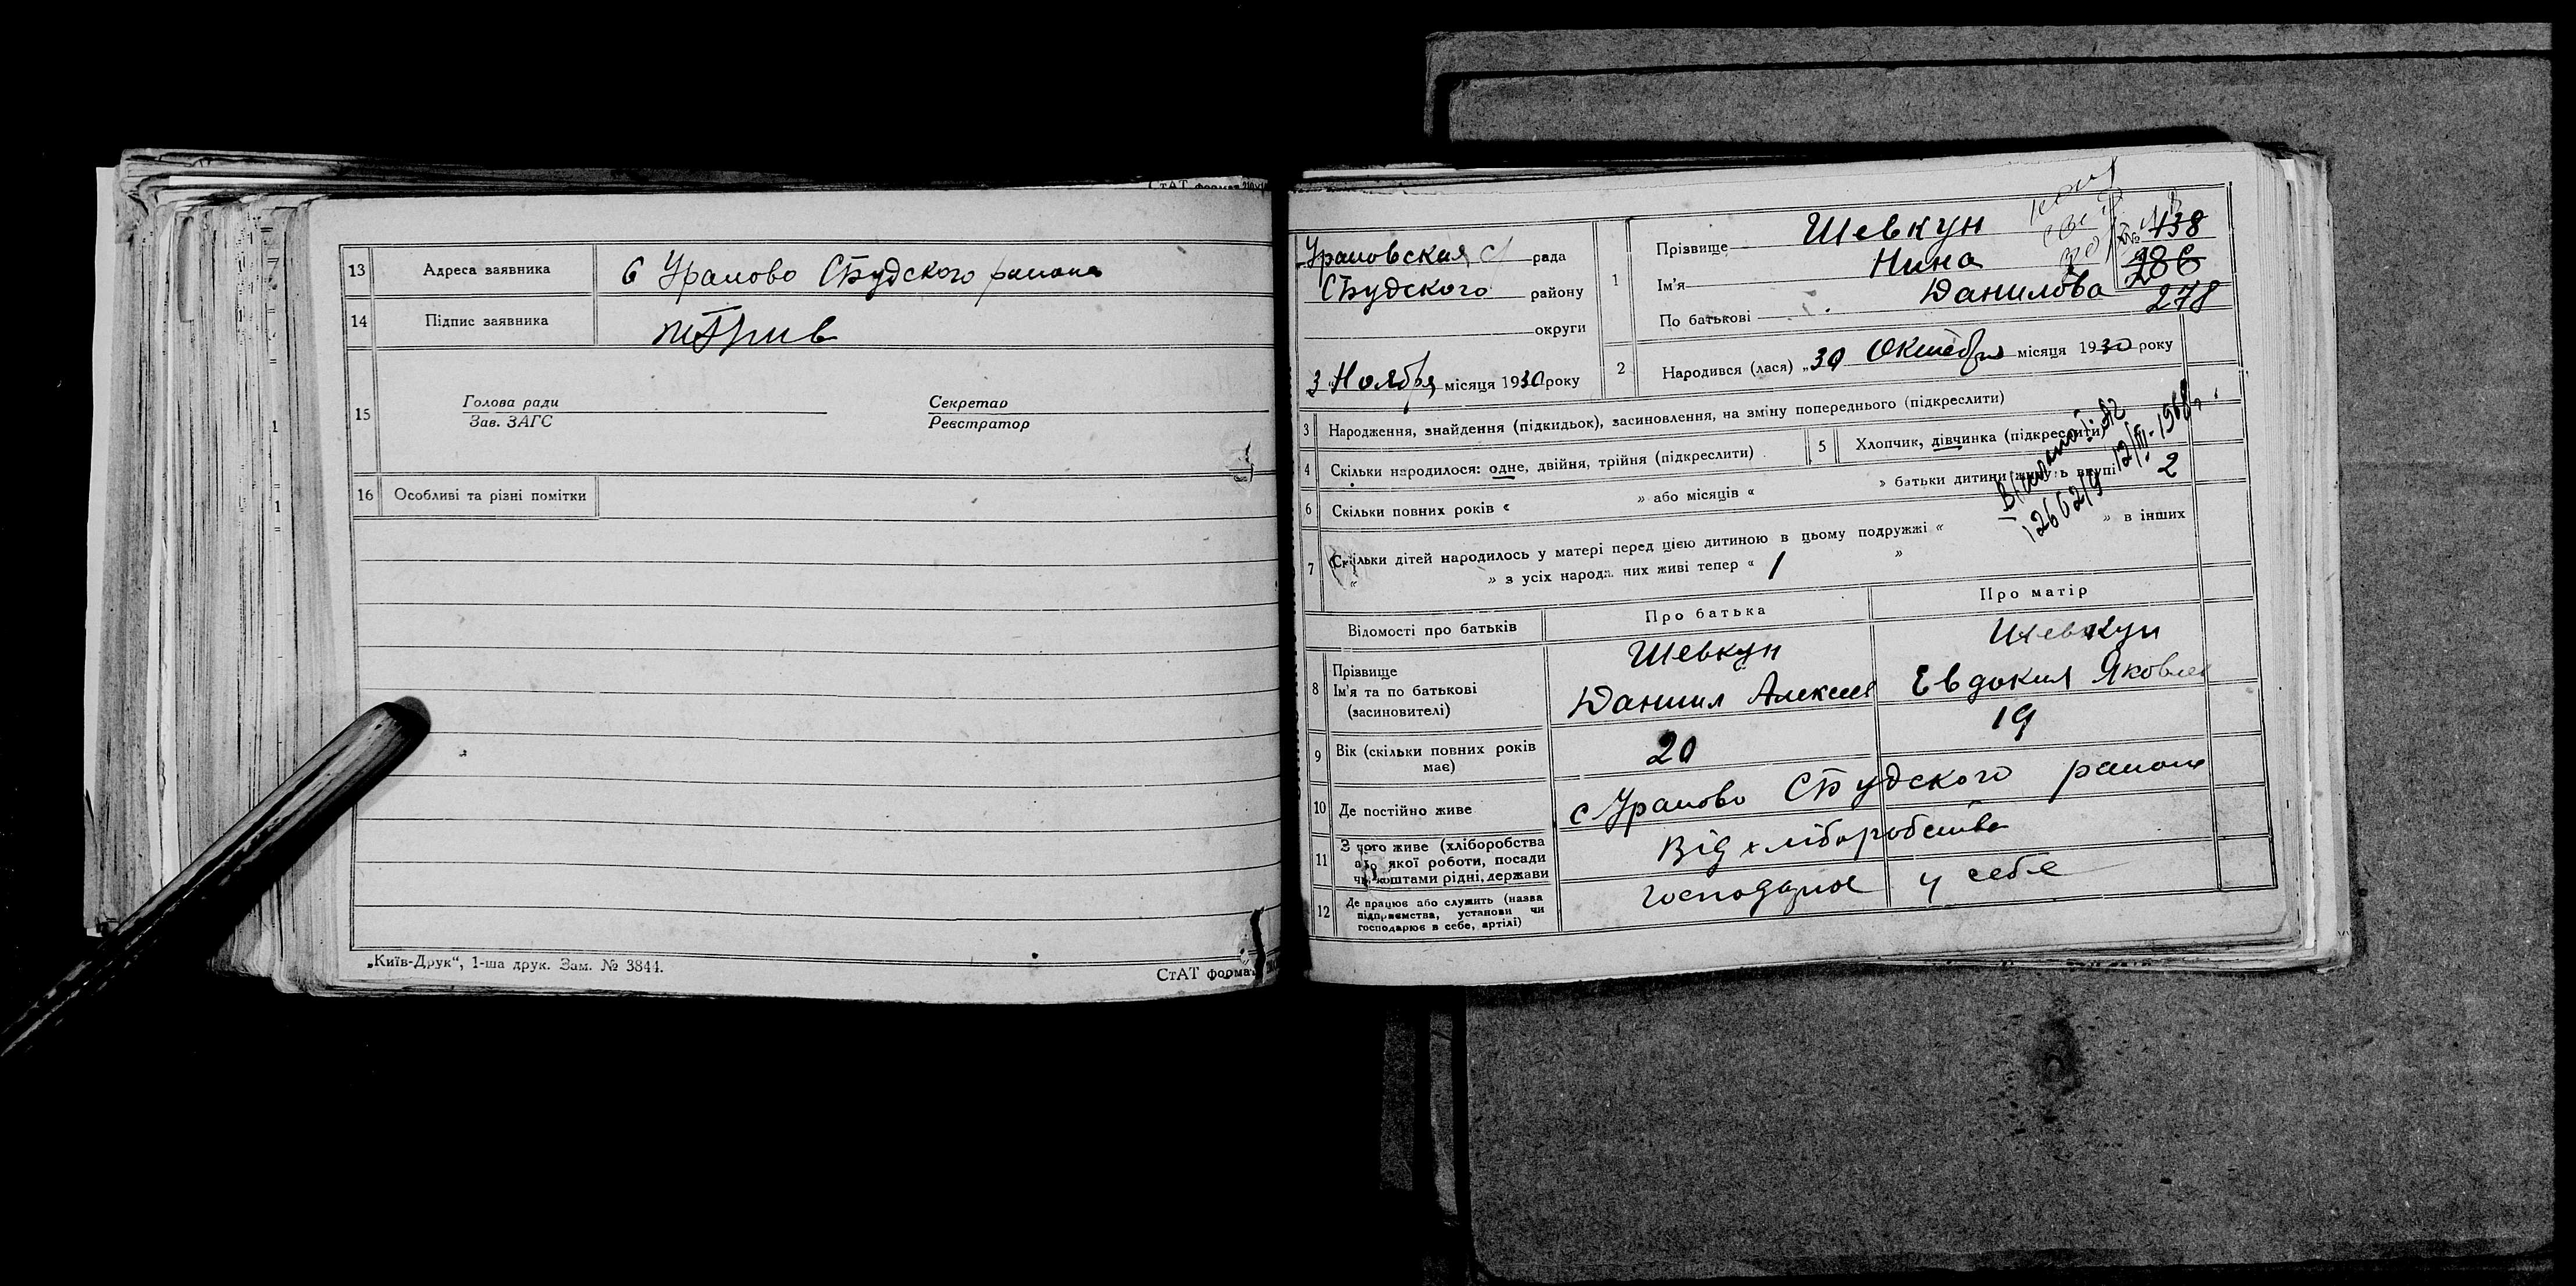 СтАТ формат 210×
13 Адреса заявника с Ураиово СБудского раиона
14 Підпис заявника
15 Голова ради Секретар
Зав. ЗАГС Реєстратор
16 Особливі та різні помітки
„Київ-Друк“, 1-ша друк. Зам. № 3844.
СтАТ формат
Ураиовская с/ рада
СБудского району
округи
3 Ноября місяця 1930 року
1 Прізвище Шевкун
Ім'я Нина
По батькові Данилова
№ 138
286
278
2 Народився (лася) „30 Октября місяця 1930 року
3 Народження, знайдення (підкидьок), засиновлення, на зміну попереднього (підкреслити)
4 Скільки народилося: одне, двійня, трійня (підкреслити)
5 Хлопчик, дівчинка (підкреслити)
6 Скільки повних років « » або місяців « » батьки дитини живуть вкупі
12662/9 12/III-1968г
7 Скільки дітей народилось у матері перед цією дитиною в цьому подружжі « 2 » в інших
« » з усіх народж. них живі тепер « 1 »
Відомості про батьків Про батька Про матір
8 Прізвище Шевкун Шевкун
Ім'я та по батькові Даниил Алексеев Евдокия Яковлев
(засиновителі)
9 Вік (скільки повних років має) 20 19
10 Де постійно живе с Ураиово СБудского раиона
11 З чого живе (хліборобства або якої роботи, посади чи коштами рідні, держави Від хліборобства
12 Де працює або служить (назва підприємства, установи чи господарює в себе, артілі) Господарює у себе